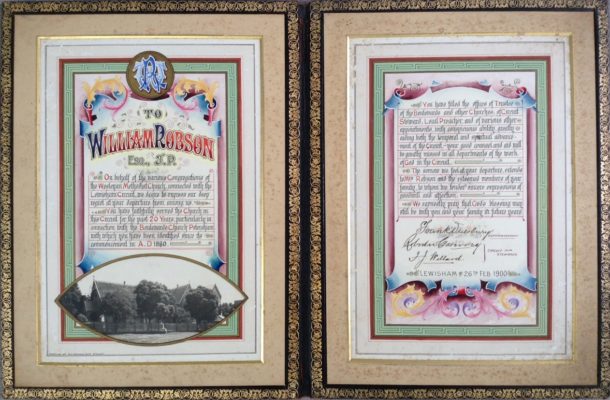 WR
TO
WILLIAM ROBSON
ESQ., J.P.
On behalf of the various Congregations of
the Wesleyan Methodist Church, connected with the
Lewisham Circuit, we desire to express our deep
regret at your departure from among us
You have faithfully served the Church in
the Circuit for the past 20 Years, particularly in
connection with the Church Petersham
with which you have been identified since its
commencement in A.D. 1880
You have filled the office of Trustee
of the and other Churches of Circuit
Steward, Local Preacher and of various other
appointments, with ability, greatly
aiding both the temporal and spiritual advance-
ment of the Circuit your good counsel and aid will
be greatly missed in all departments of the work
of God in the Circuit.
The sorrow we feel at your departure extends
to Mrs Robson and the esteemed members of your
family, to whom we tender sincere expressions of
and affection.
We earnestly pray that God's blessing may
still be with you and your family in future years
CIRCUIT
STEWARDS
LEWISHAM 26TH FEB. 1900